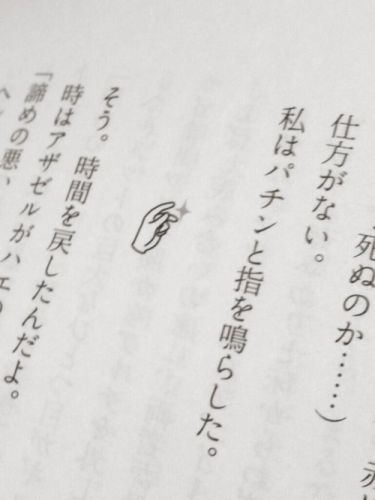 死ぬのか……)
仕方がない。
私はパチンと指を鳴らした。
そう。時間を戻したんだよ。
時はアザゼルがハエの
「諦めの悪い